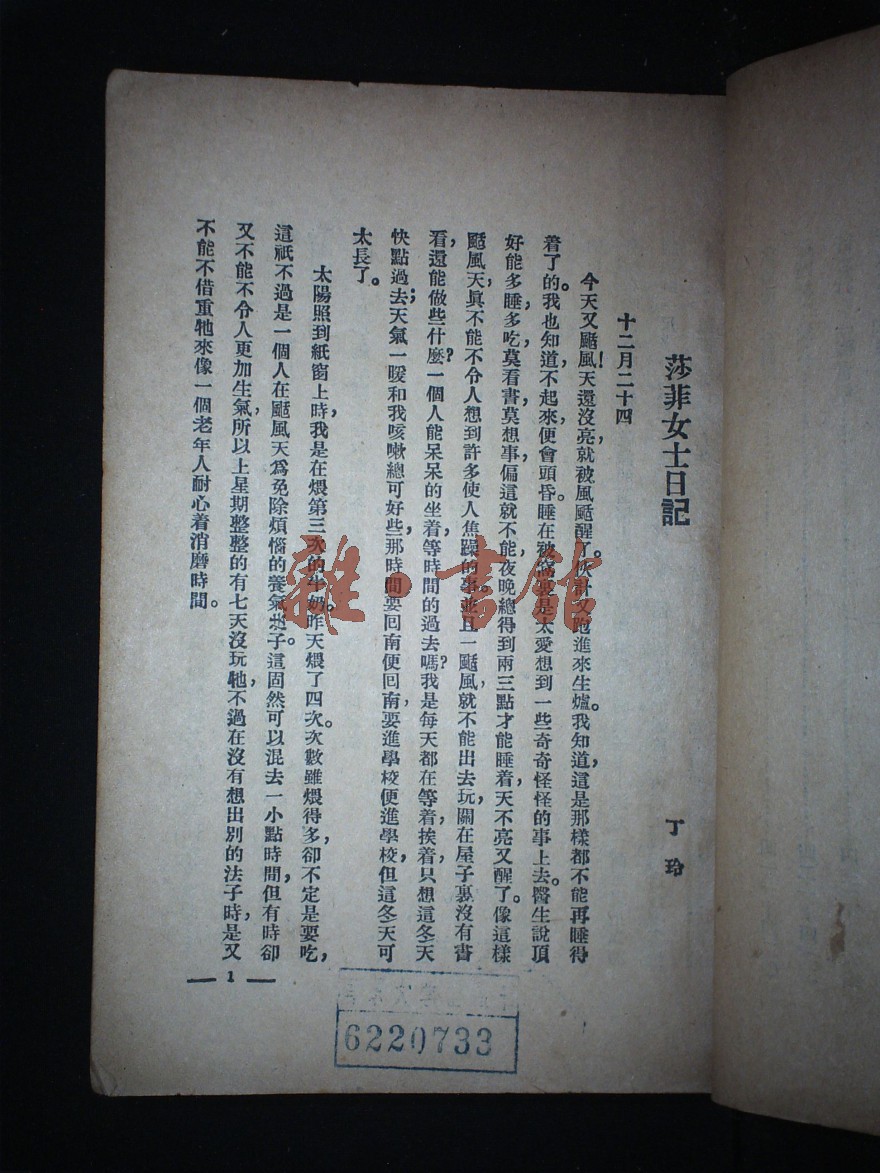 莎菲女士日記
丁玲
十二月二十四
今天又颳風!天還沒亮,就被風颳醒了。伙計又跑進來生爐。我知道,這是那樣都不能再睡得
着了的。我也知道,不起來,便會頭昏。睡在被窩裏是太愛想到一些奇奇怪怪的事上去。醫生說頂
好能多睡,多吃,莫看書,莫想事,偏這就不能,夜晚總得到兩三點才能睡着,天不亮又醒了。像這樣
颳風天,真不能不令人想到許多使人焦躁的事。並且一颳風,就不能出去玩,關在屋子裏沒有書
看,還能做些什麼?一個人能呆呆的坐着,等時間的過去嗎?我是每天都在等着,挨着,只想這冬天
快點過去;天氣一暖和,我咳嗽總可好些,那時間,要回南便回南,要進學校便進學校,但這冬天可
太長了。
太陽照到紙窗上時,我是在煨第三次的牛奶。昨天煨了四次。次數雖煨得多,卻不定是要吃,
這祇不過是一個人在颳風天爲免除煩惱的養氣法子。這固然可以混去一小點時間,但有時卻
又不能不令人更加生氣,所以上星期整整的有七天沒玩牠,不過在沒有想出別的法子時,是又
不能不借重牠來像一個老年人耐心着消磨時間。
1
6220733
雜·書館